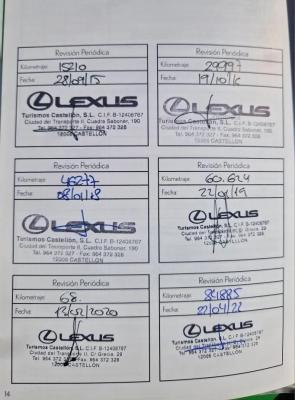 Revisión Periódica
Kilometraje: 15210
Fecha: 28/09/15
LEXUS
Turismos Castellón, S.L. C.I.F. B-12408767
Ciudad del Transporte II, Cuadra Saboner, 190
Tel. 964 372 327 - Fax: 964 372 328
12006 CASTELLÓN
Revisión Periódica
Kilometraje: 29997
Fecha: 19/10/16
LEXUS
Turismos Castellón, S.L. C.I.F. B-12408767
Ciudad del Transporte II, Cuadra Saboner, 190
Tel. 964 372 327 - Fax: 964 372 328
12006 CASTELLÓN
Revisión Periódica
Kilometraje:
Fecha: 08/01/18
LEXUS
Turismos Castellón, S.L. C.I.F. B-12408767
Ciudad del Transporte II, Cuadra Saboner, 190
Tel. 964 372 327 - Fax: 964 372 328
12006 CASTELLÓN
Revisión Periódica
Kilometraje: 60.624
Fecha: 22/01/19
LEXUS
Turismos Castellón, S.L. C.I.F. B-12408767
Ciudad del Transporte II, Cuadra Saboner, 190
Tel. 964 372 327 - Fax: 964 372 328
12006 CASTELLÓN
Revisión Periódica
Kilometraje: 68.
Fecha: /02/2020
LEXUS
Turismos Castellón, S.L. C.I.F. B-12408767
Ciudad del Transporte II, C/ Grecia, 29
Tel. 964 372 327 - Fax: 964 372 328
12006 CASTELLÓN
Revisión Periódica
Kilometraje: 81885
Fecha: 22/04/22
LEXUS
Turismos Castellón, S.L. C.I.F. B-12408767
Ciudad del Transporte II, C/ Grecia, 29
Tel. 964 372 327 - Fax: 964 372 328
12006 CASTELLÓN
14